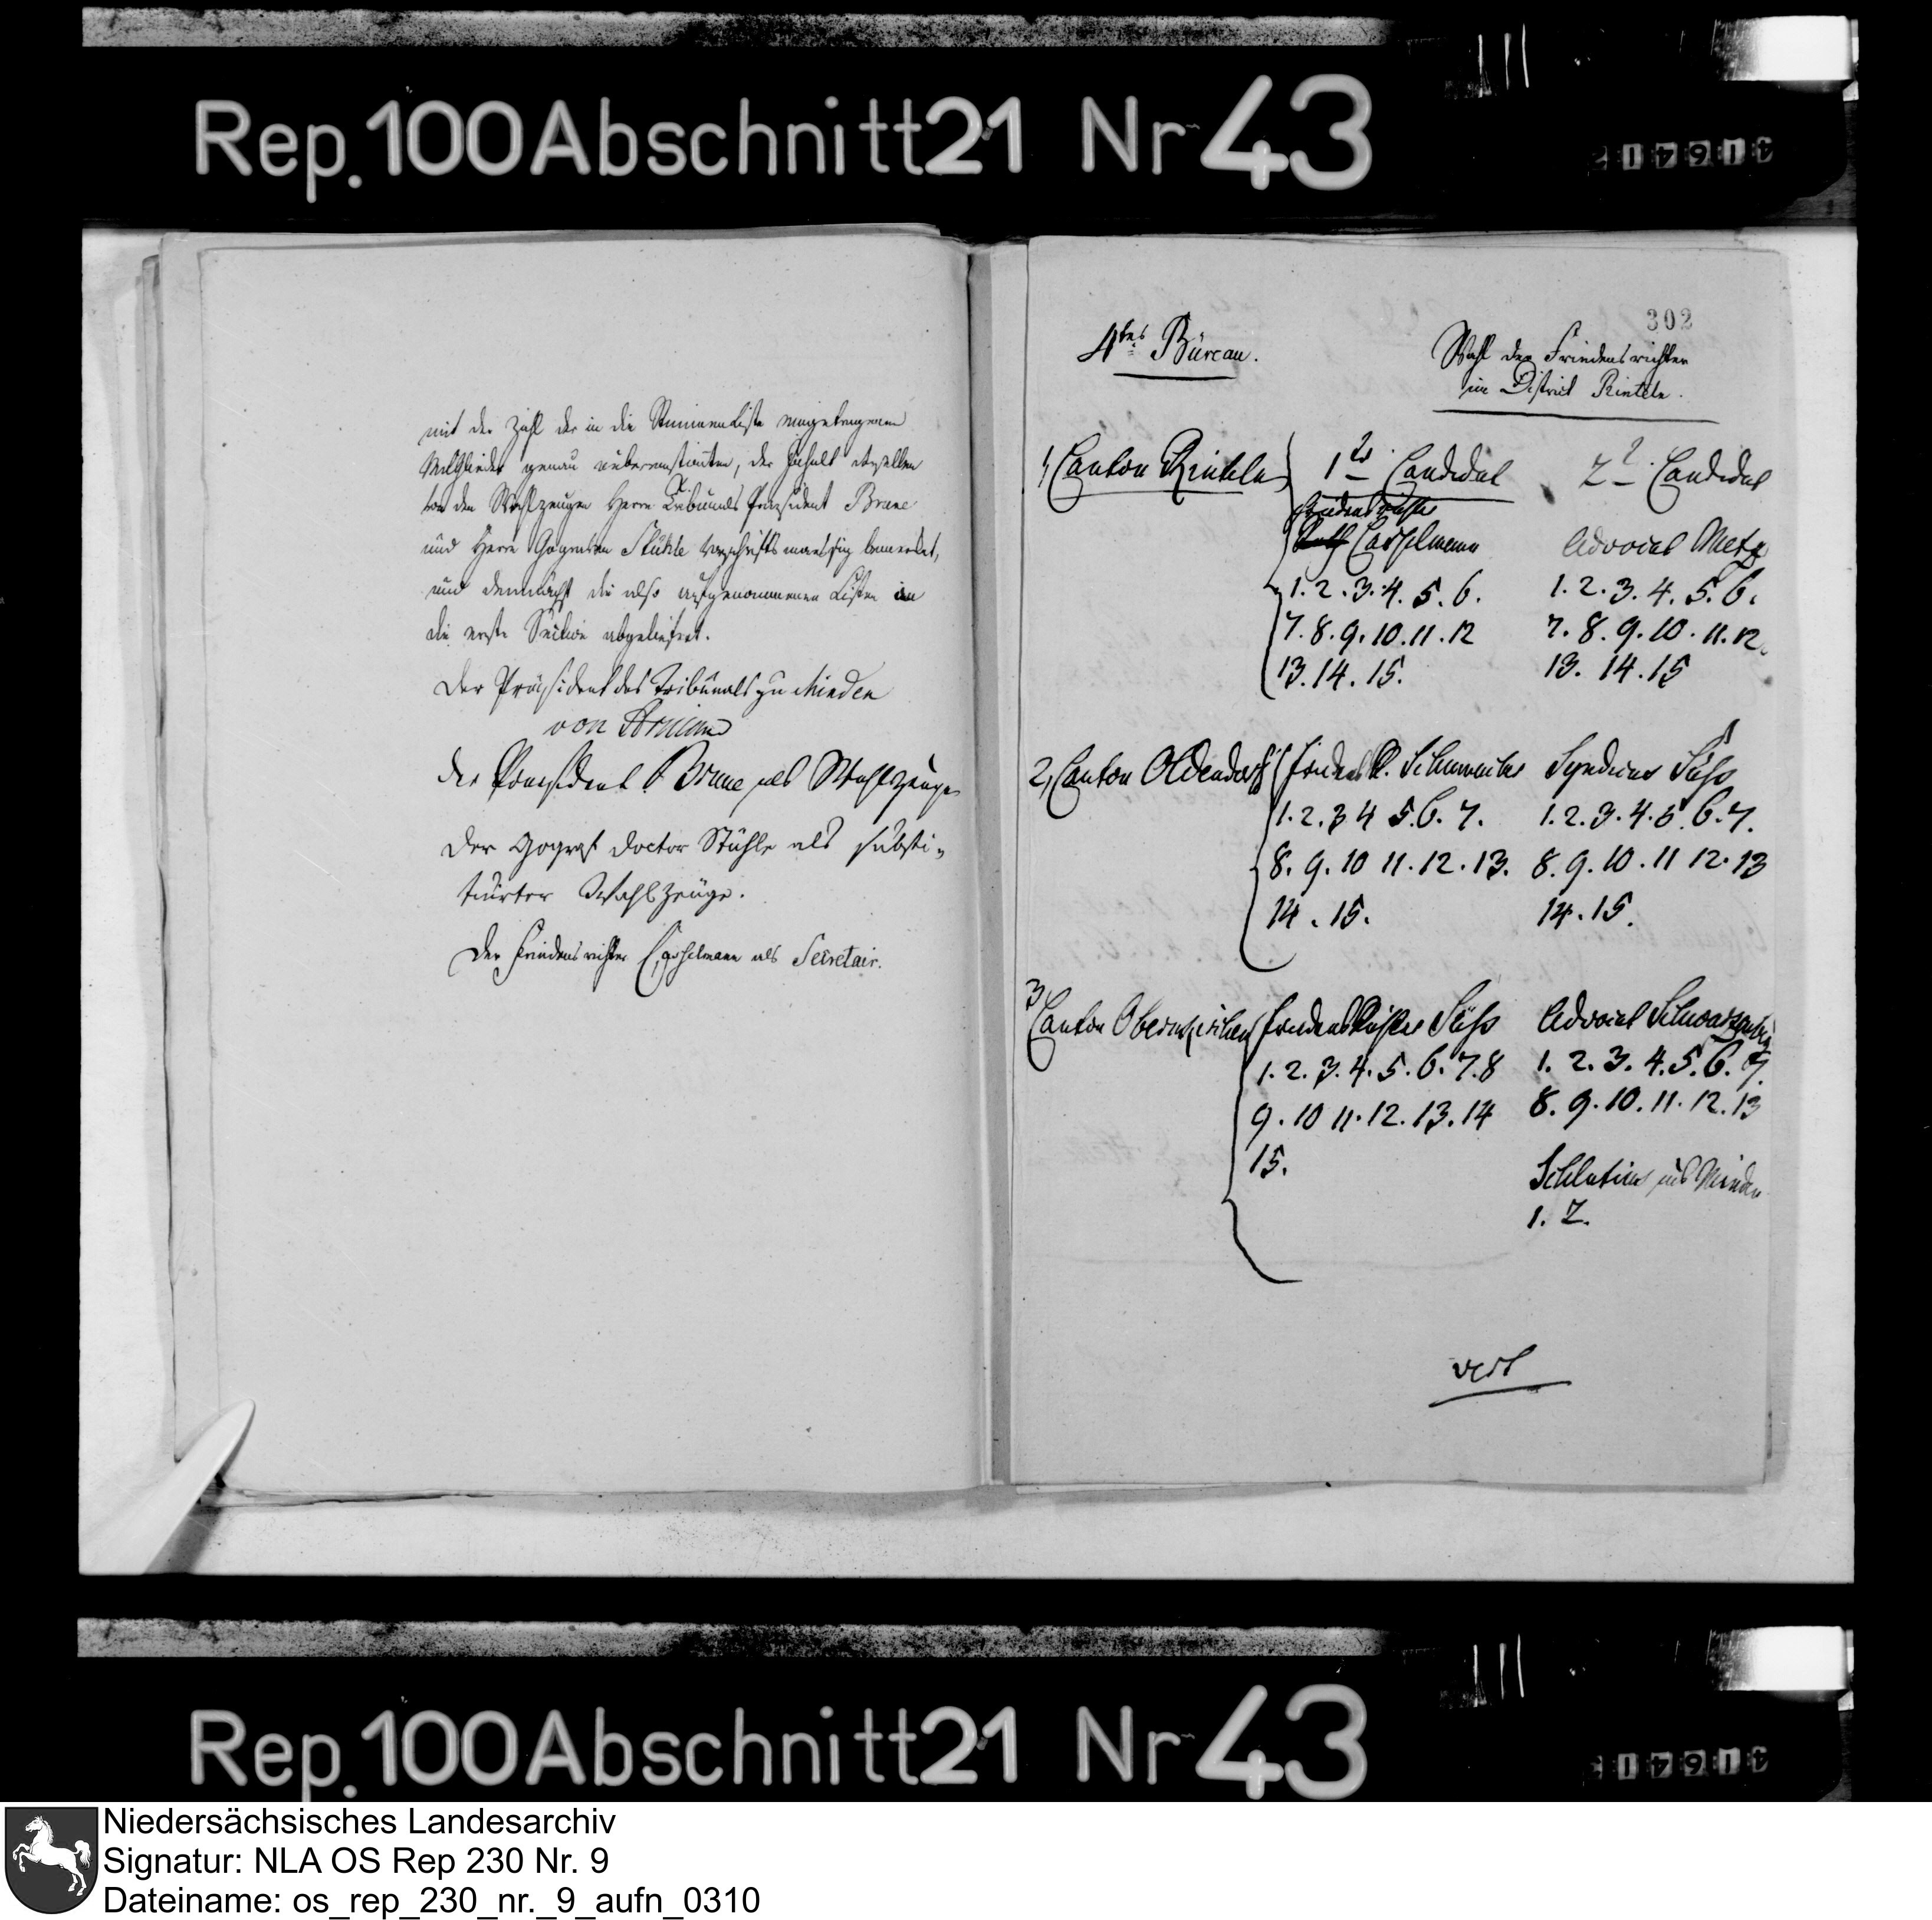 Rep. 100 Abschnitt 21 Nr 43
mit der Zahl der in die Stimmenliste eingetragenen
Mitglieder genau übereinstimten, der Inhalt derselben
von den Wahlzeugen Herrn Tribunals Präsident Brune
und Herrn Gografen Stühle vorschriftsmaessig bemerket,
und demnächst die also aufgenommenen Listen an
die erste Section abgeliefert.
Der Präsident des Tribunals zu Minden
von Arnim
der Praesident Brune als Wahlzeuge
Der Gograf Doctor Stühle als substi-
tuirter Wahlzeuge.
Der Friedensrichter Casselmann als Secretair.
302
4tes Büreau.
Wahl der Friedensrichter
im District Rinteln.
1, Canton Rinteln
1ter Candidat
2ter Candidat
Friedensrichter
Casselmann
Advocat Metz
1. 2. 3. 4. 5. 6.
1. 2. 3. 4. 5. 6.
7. 8. 9. 10. 11. 12
7. 8. 9. 10. 11. 12.
13. 14. 15.
13. 14. 15
2, Canton Oldendorf
Friedens R. Schumacher
Syndicus Süss
1. 2. 3 4 5. 6. 7.
1. 2. 3. 4. 5. 6. 7.
8. 9. 10 11. 12. 13.
8. 9. 10. 11 12. 13
14. 15.
14. 15.
3 Canton Obernkirchen
Friedens Richter Süss
Advocat Schwarzenberg
1. 2. 3. 4. 5. 6. 7. 8
1. 2. 3. 4. 5. 6. 7.
9. 10 11. 12. 13. 14
8. 9. 10. 11. 12. 13
15.
Minden
1. 2.
Rep. 100 Abschnitt 21 Nr 43
Niedersächsisches Landesarchiv
Signatur: NLA OS Rep 230 Nr. 9
Dateiname: os_rep_230_nr._9_aufn_0310